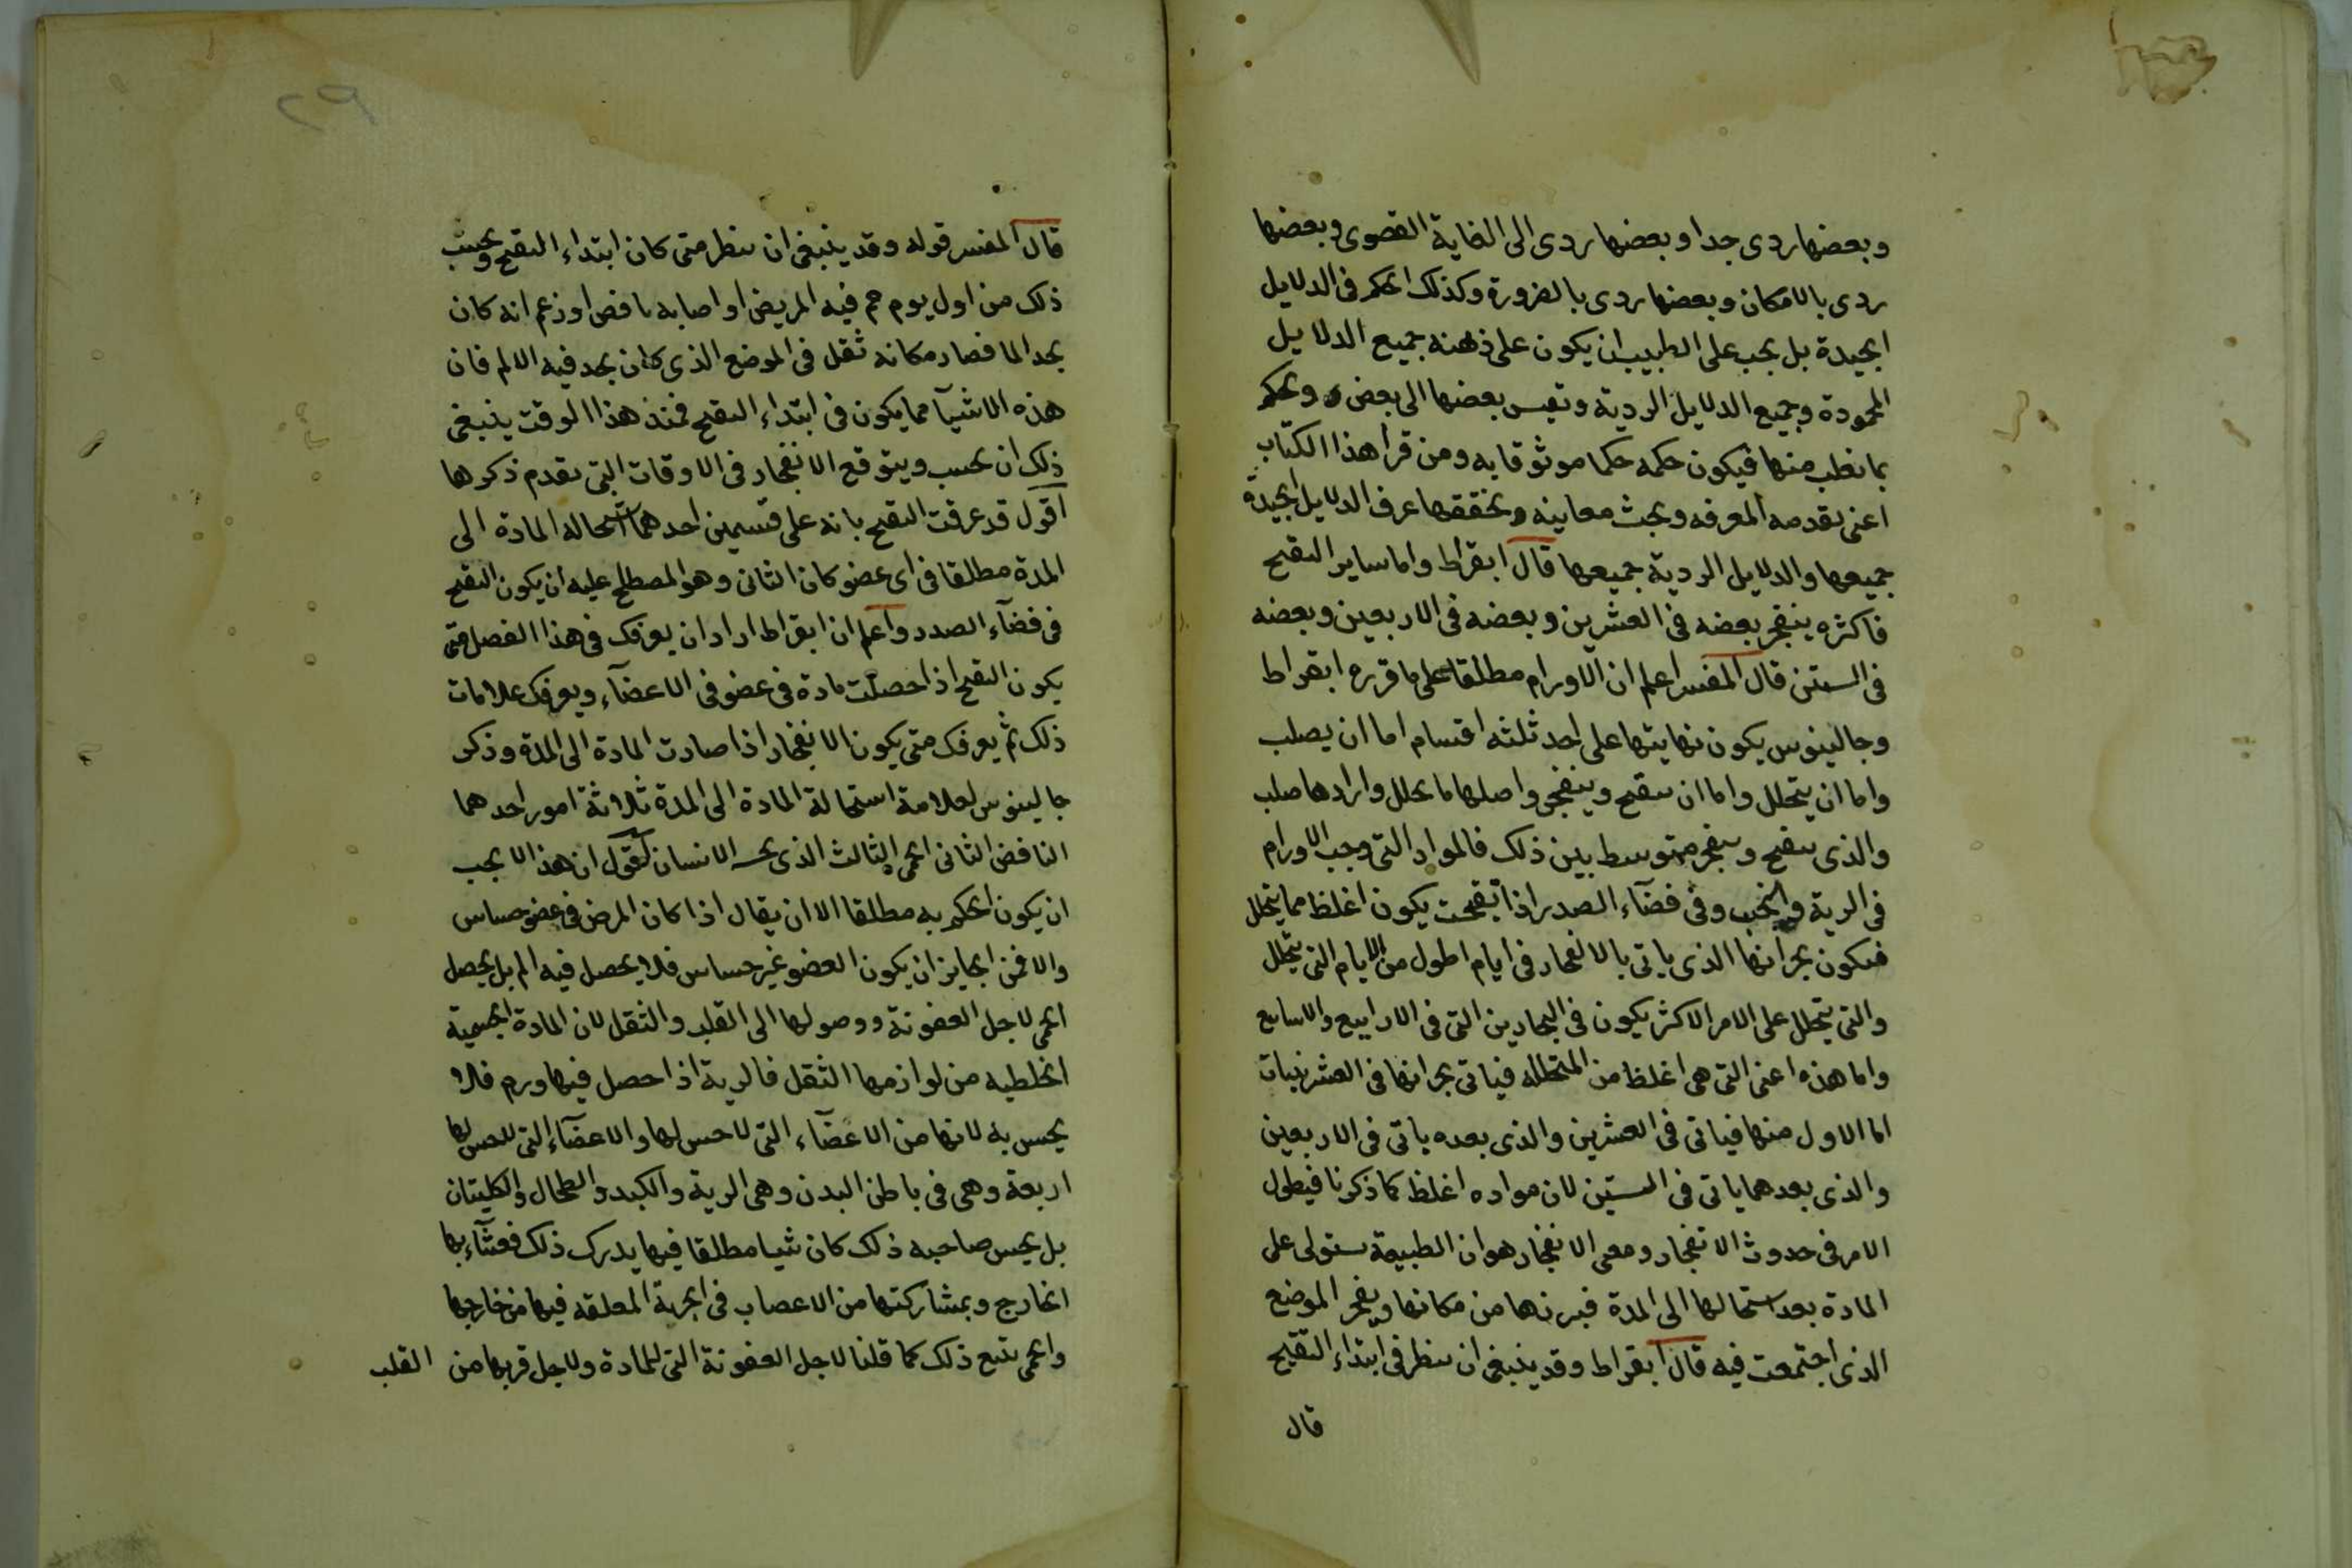 وبعضها ردى جدا وبعضها ردى الى الغاية القصوى وبعضها
ردى بالامكان وبعضها ردى بالضرورة وكذلك الحكم فى الدلايل
الجيدة بل يجب على الطبيب ان يكون على ذهنه جميع الدلايل
المحمودة وجميع الدلايل الردية وتقيس بعضها الى بعض ويحكم
بما يغلب منها فيكون حكمه حكما موثوقا به ومن قرا هذا الكتاب
اعنى تقدمه المعرفه وبحث معاينه وتحققها عرف الدلايل الجيدة
جميعها والدلايل الردية جميعها قال ابقراط واما ساير التقيح
فاكثره ينفجر بعضه فى العشرين وبعضه فى الاربعين وبعضه
فى الستين قال المفسر اعلم ان الاورام مطلقا على ما قرره ابقراط
وجالينوس يكون نهايتها على احد ثلثه اقسام اما ان يصلب
واما ان يتحلل واما ان يتقيح وينفجر واصلها ما تحلل وارادها صلب
والذى يتقيح وينفجر متوسط بين ذلك فالمواد التى وجب الاورام
فى الرية والجنب وفى فضآء الصدر اذا تقيحت يكون اغلظ مما يتحلل
فيكون بحرانها الذى ياتى بالانفجار فى ايام اطول من الايام التى يتحلل
والتى يتحلل على الامر الاكثر يكون فى البحارين التى فى الارابيع والاسابيع
واما هذه اعنى التى هى اغلظ من المتحلله فياتى بحرانها فى العشرينيات
اما الاول منها فياتى فى العشرين والذى بعده ياتى فى الاربعين
والذى بعدهما ياتى فى الستين لان مواده اغلظ كما ذكرنا فيطول
الامر فى حدوث الانفجار ومعنى الانفجار هو ان الطبيعة ستولى على
المادة بعد استحالتها الى المدة فيبرزها من مكانها ويفجر الموضع
الذى اجتمعت فيه قال ابقراط وقد ينبغى ان ينظر فى ابتداء التقيح
قال
٢٩
قال المفسر قوله وقد ينبغى ان ينظر متى كان ابتداء التقيح ويحسب
ذلك من اول يوم حم فيه المريض او اصابه نافض او زعم انه كان
يجد الما فصار مكانه ثقل فى الموضع الذى كان يجد فيه الالم فان
هذه الاشيآ مما يكون فى ابتداء التقيح فمنذ هذا الوقت ينبغى
ذلك ان يحسب ويتوقع الانفجار فى الاوقات التى تقدم ذكرها
اقول قد عرفت التقيح بانه على قسمين احدهما استحاله المادة الى
المدة مطلقا فى اى عضو كان الثانى وهو المصطلح عليه ان يكون التقيح
فى فضآء الصدر واعلم ان ابقراط اراد ان يعرفك فى هذا الفصل متى
يكون التقيح اذا حصلت مادة فى عضو فى الاعضآء ويعرفك علامات
ذلك ثم يعرفك متى يكون الانفجار اذا صارت المادة الى المدة وذكر
جالينوس لعلامة استحالة المادة الى المدة ثلاثة امور احدهما
النافض الثانى الحمى الثالث الذى يحسه الانسان لقول ان هذا لا يجب
ان يكون الحكم به مطلقا الا ان يقال اذا كان المرض فى عضو حساس
والا فمن الجايز ان يكون العضو غير حساس فلا يحصل فيه الم بل يحصل
الحمى لاجل العفونة ووصولها الى القلب والثقل لان المادة الجسمية
الخلطيه من لوازمها الثقل فالرية اذا حصل فيها ورم فلا
يحس به لانها من الاعضآء التى لا حس لها والاعضآء التى لا حس لها
اربعة وهى فى باطن البدن وهى الرية والكبد والطحال والكليتان
بل يحس صاحبه ذلك كان شيا مطلقا فيها يدرك ذلك فغشآءيها
الخارج وبمشاركتها من الاعصاب فى الجهة المعلقه فيها من خارجها
والحمى يتبع ذلك كما قلنا لاجل العفونة التى للمادة ولاجل قربها من القلب